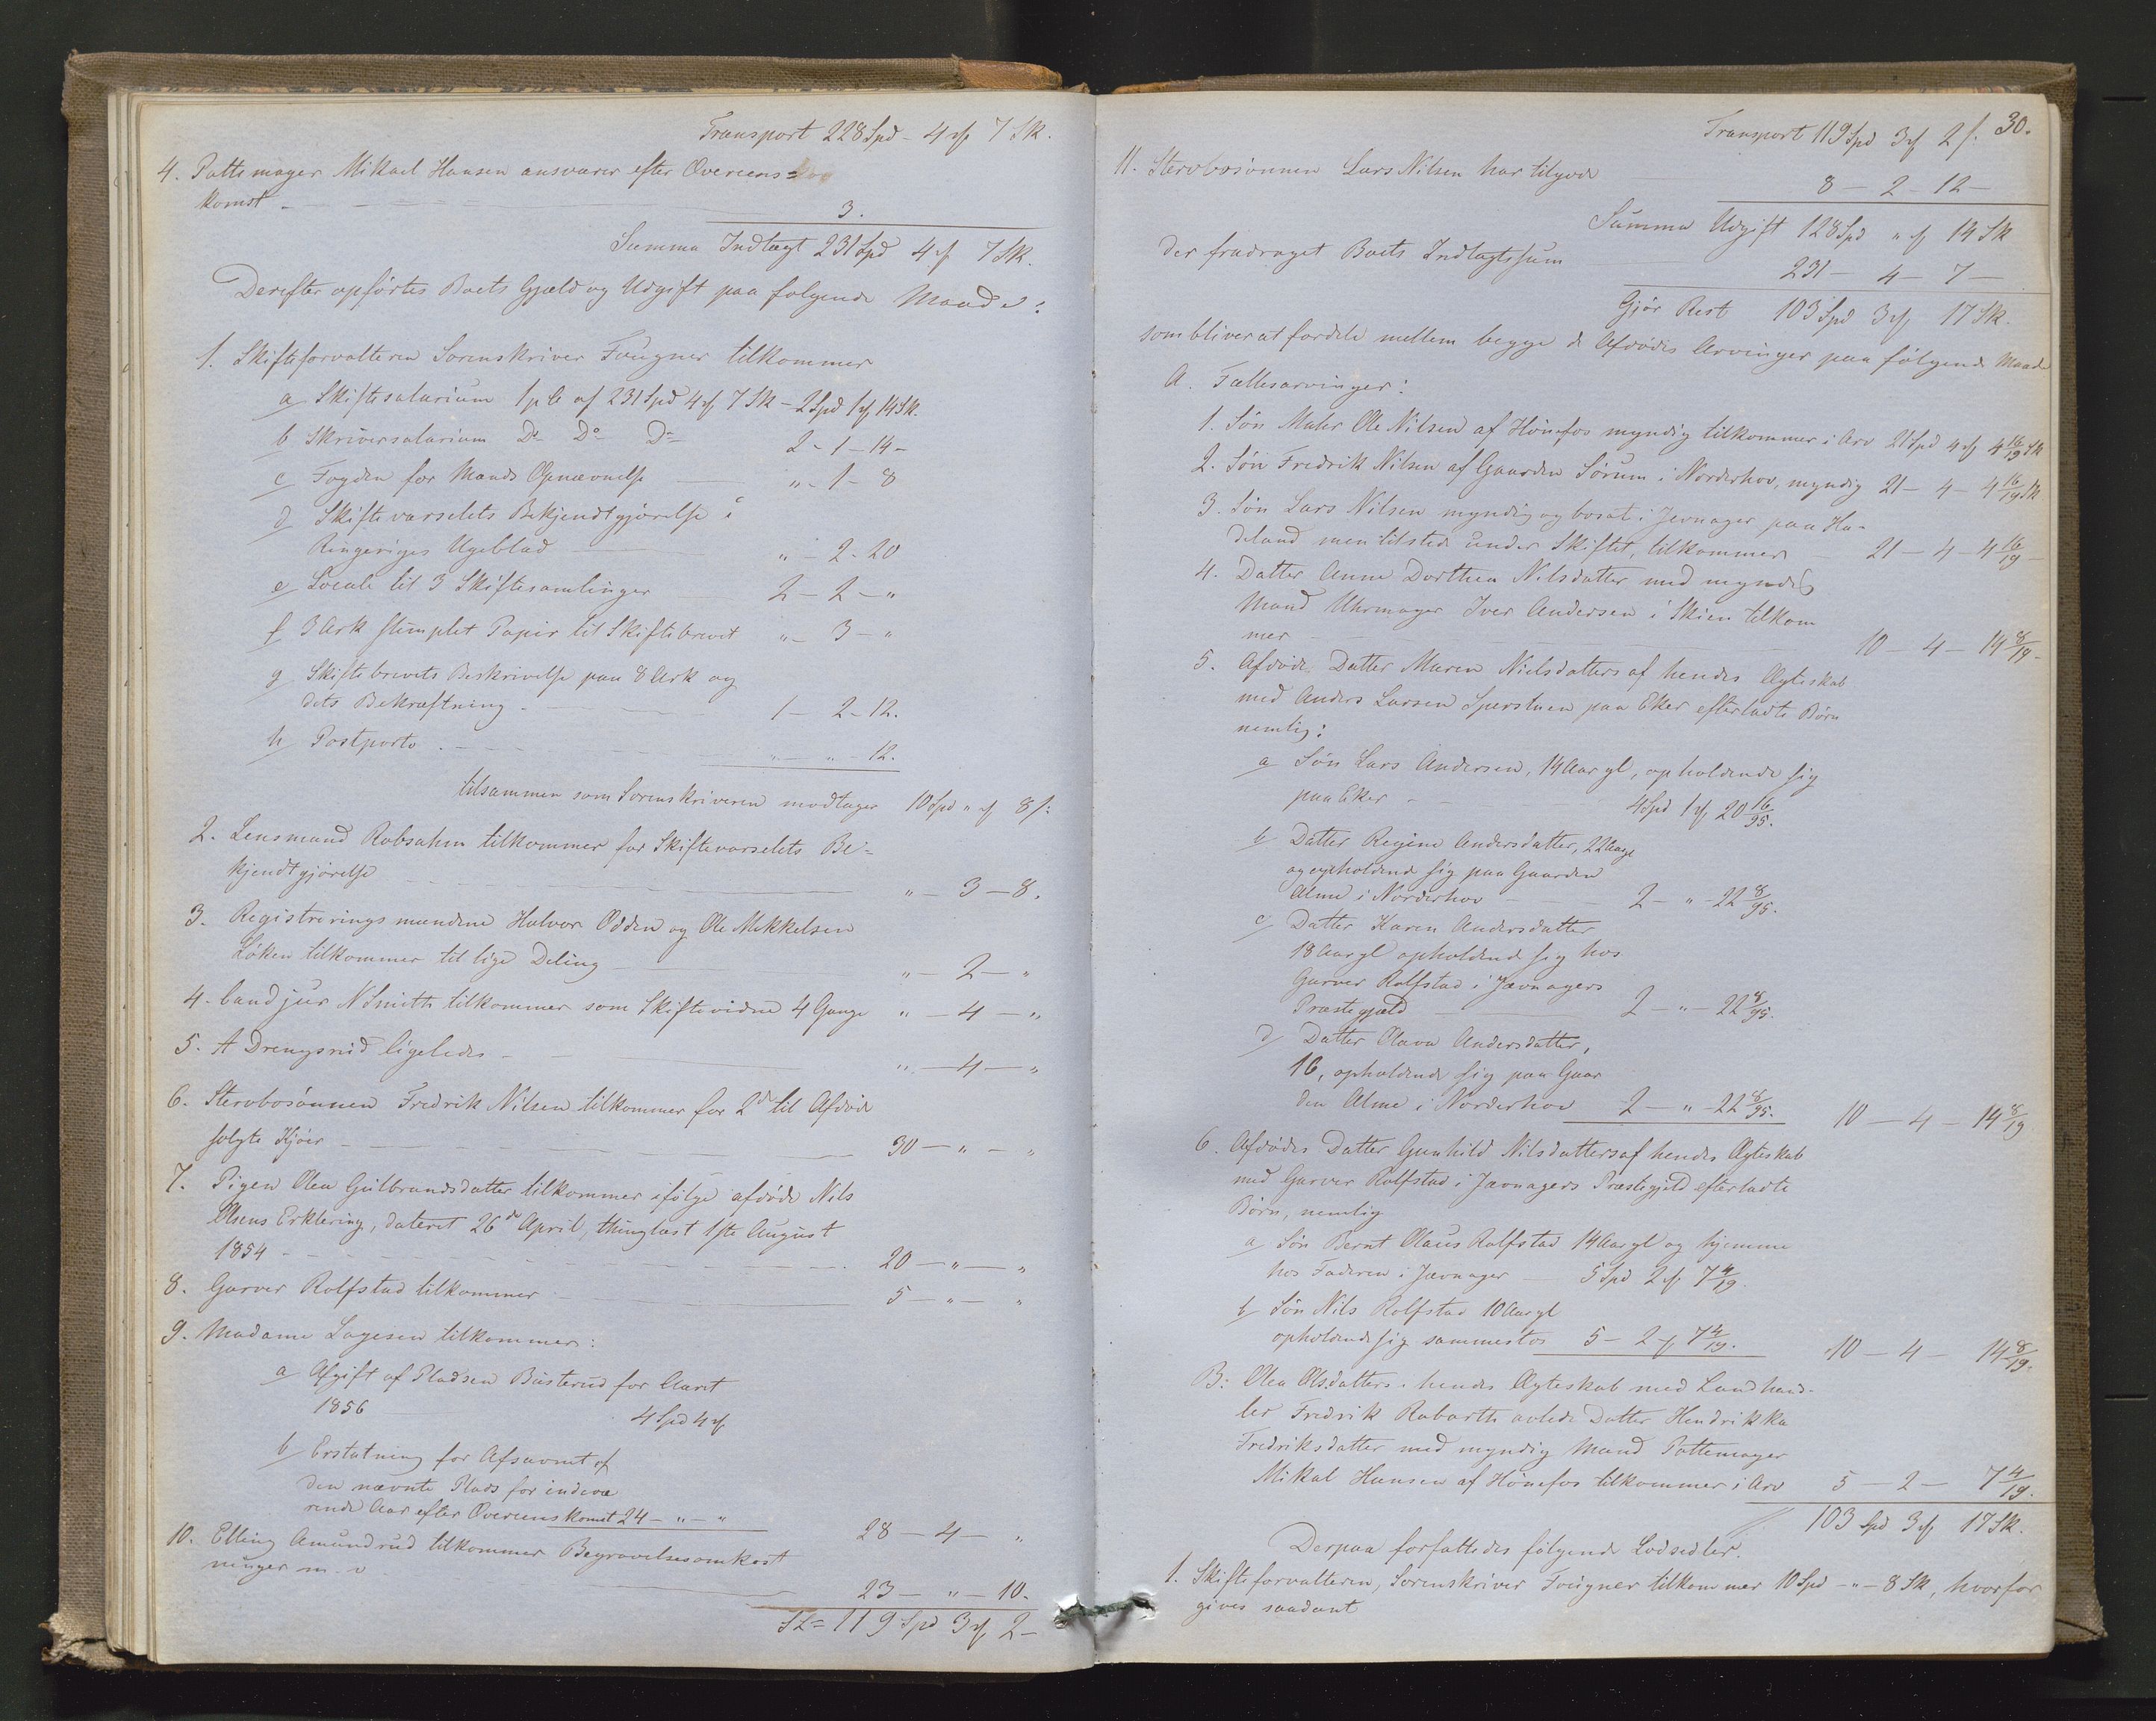 Transport 228 Spd - 4 ₰ 7 Sk.
4. Pottemager Mikael Hansen ansvarer efter Overeens=
komst - 3.
Summa Indtægt 231 Spd 4 ₰ 7 Sk.
Derefter opførtes Boets Gjæld og Udgift paa følgende Maade:
1. Skifteforvalteren Sorenskriver Fougner tilkommer
a Skiftesalarium 1 pC af 231 Spd 4 ₰ 7 Sk - 2 Spd 1 ₰ 14 Sk.
b Skriversalarium Do Do Do 2 - 1 - 14 -
c Fogden for Mænds Opnævnelse " - 1 - 8
d Skiftevarselets Bekjendtgjørelse i
Ringeriges Ugeblad " - 2 - 20
e Locale til 3 Skiftesamlinger 2 - 2 - "
f 3 Ark stemplet Papir til Skiftebrevet " - 3 - "
g Skiftebrevets Beskrivelse paa 8 Ark og
dets Bekræftning - 1 - 2 - 12.
h Postporto - " - " - 12.
tilsammen som Sorenskriveren modtager 10 Spd " ₰ 8 s:
2. Lensmand Robsahm tilkommer for Skiftevarselets Be=
kjendtgjørelse " - 3 - 8.
3. Registreringsmændene Halvor Odden og Ole Mikkelsen
Løken tilkommer til lige Deling " - 2 - "
4. Cand jur N Smith tilkommer som Skiftevidne 4 Gange " - 4 - "
5. A Drengsrud ligeledes - " - 4 - "
6. Stervbosønnen Fredrik Nilsen tilkommer for 2de til Afdøde
solgte Kjøer - 30 - " - "
7. Pigen Olea Gulbrandsdatter tilkommer ifølge afdøde Nils
Olsens Erklering, dateret 26de April, thinglæst 1ste August
1854 - 20 - " - "
8. Garver Rolfstad tilkommer 5 - " - "
9. Madame Lagesen tilkommer:
a Afgift af Pladsen Busterud for Aaret
1856 4 Spd 4 ₰
b Erstatning for Afsavnet af
den nævnte Plads for indevæ
rende Aar efter Overeenskomst 24 - " - "
28 - 4 - "
10. Elling Amundrud tilkommer Begravelsesomkost
ninger m. v 23 - " - 10.
Lt = 119 Spd 3 ₰ 2 -
30.
Transport 119 Spd 3 ₰ 2 s.
11. Stervbosønnen Lars Nilsen har tilgode 8 - 2 - 12 -
Summa Udgift 128 Spd " ₰ 14 Sk
Der fradraget Boets Indtægtssum 231 - 4 - 7 -
Gjør Rest 103 Spd 3 ₰ 17 Sk.
som bliver at fordele mellem begge de Afdødes Arvinger paa følgende Maade
A. Fællesarvinger:
1. Søn Maler Ole Nilsen af Hønefos myndig tilkommer i Arv 21 Spd 4 ₰ 4 16/19 Sk
2. Søn Fredrik Nilsen af Gaarden Sørum i Norderhov, myndig 21 - 4 - 4 16/19 Sk
3. Søn Lars Nilsen myndig og bosat i Jevnager paa Ha-
deland men tilstede under Skiftet, tilkommer 21 - 4 - 4 16/19 -
4. Datter Anne Dorthea Nilsdatter med myndig
Mand Uhrmager Iver Andersen i Skien tilkom
mer 10 - 4 - 14 8/19 -
5. Afdøde Datter Maren Nielsdatters af hendes Ægteskab
med Anders Larsen Sperstuen paa Eker efterladte Børn
nemlig:
a Søn Lars Andersen, 14 Aar gl, opholdende sig
paa Eker - 4 Spd 1 ₰ 20 16/95.
b Datter Regine Andersdatter, 22 Aar gl
og opholdende sig paa Gaarden
Alme i Norderhov 2 - " - 22 8/95.
c Datter Karen Andersdatter
18 Aar gl opholdende sig hos
Garver Rolfstad i Jævnagers
Præstegjæld 2 - " - 22 8/95.
d Datter Olava Andersdatter,
16, opholdende sig paa Gaar
den Alme i Norderhov 2 - " - 22 8/95. 10 - 4 - 14 8/19
6. Afdødes Datter Gunhild Nilsdatters af hendes Ægteskab
med Garver Rolfstad i Jævnagers Præstegjeld efterladte
Børn, nemlig
a Søn Bernt Olaus Rolfstad 14 Aar gl og hjemme
hos Faderen i Jævnager 5 Spd 2 ₰ 7 4/19.
b Søn Nils Rolfstad 10 Aar gl
opholdende sig sammestos 5 - 2 ₰ 7 4/19. 10 - 4 - 14 8/19.
B: Olea Olsdatters i hendes Ægteskab med Landhand-
ler Fredrik Rabarth avlede Datter Hendrikka
Fredriksdatter med myndig Mand Pottemager
Mikal Hansen af Hønefos tilkommer i Arv 5 - 2 - 7 4/19.
103 Spd 3 ₰ 17 Sk.
Derpaa forfattedes følgende Lodsedler.
1. Skifteforvalteren, Sorenskriver Fougner tilkommer 10 Spd - " - 8 Sk, hvorfor
gives saadant